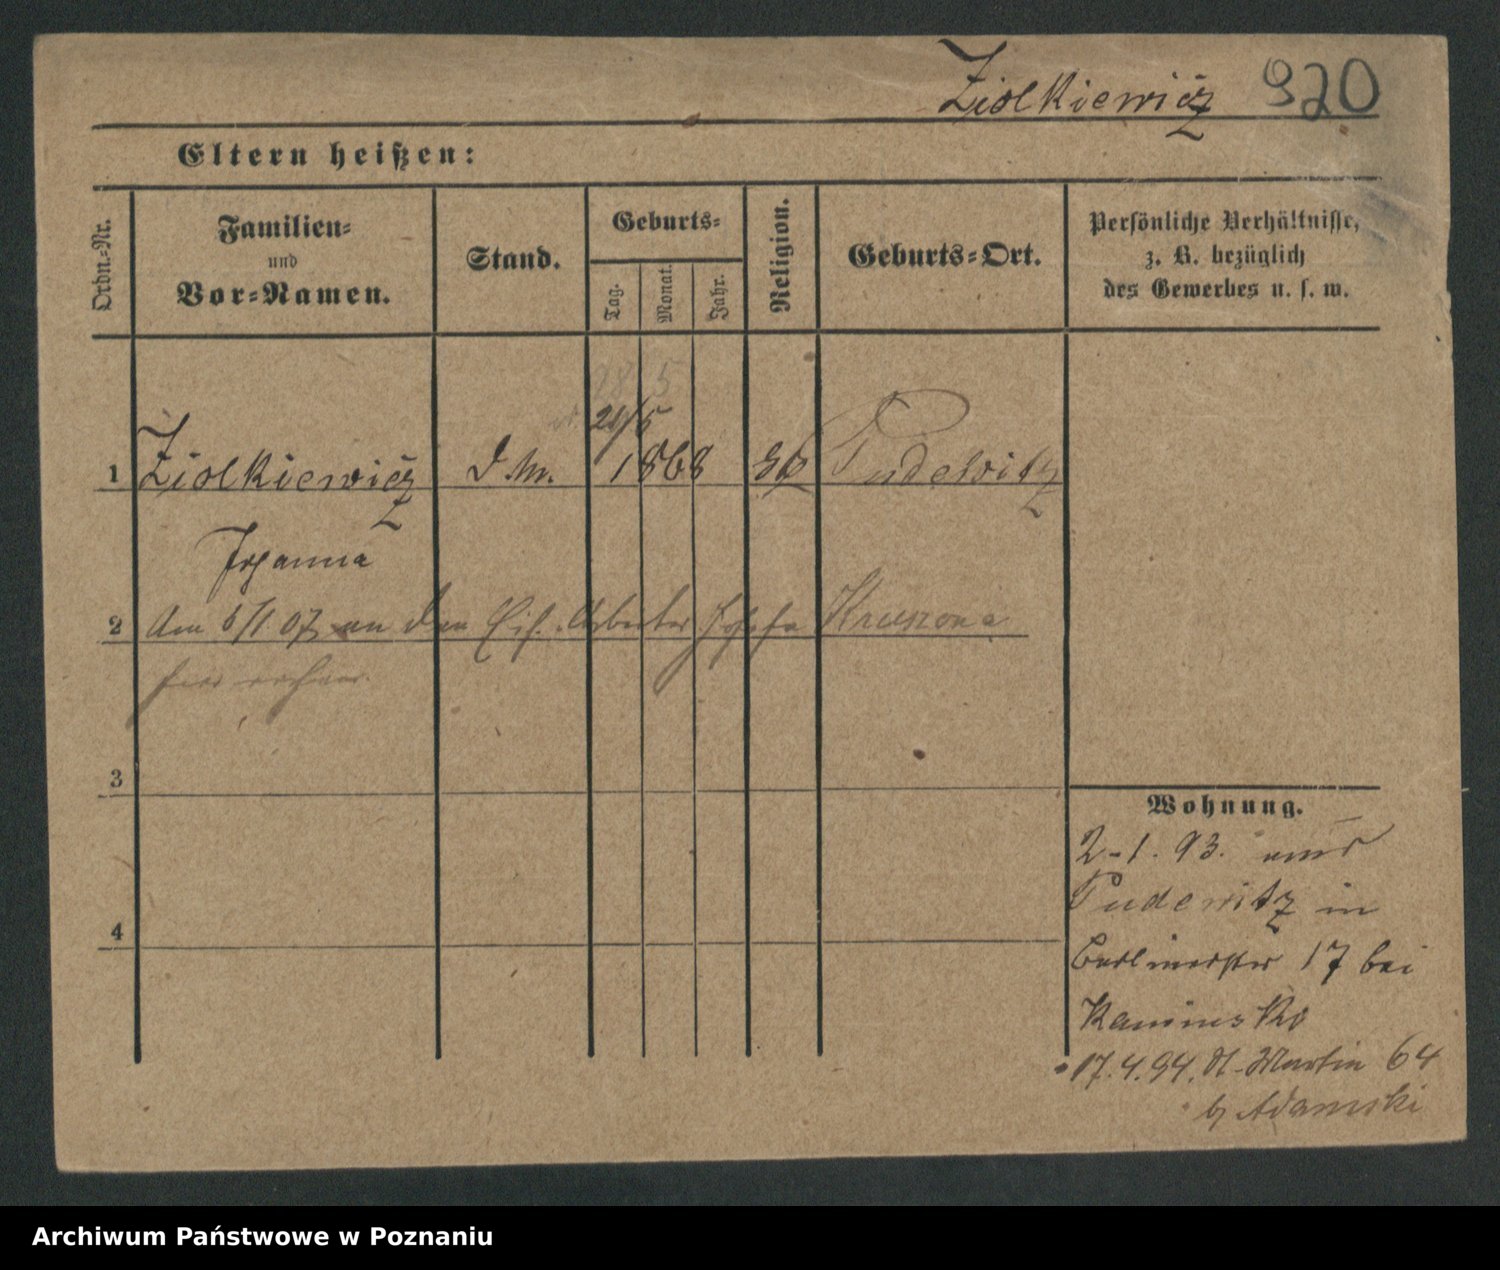 Ziolkiewicz 920
Eltern heißen:
Ordn.-Nr.
Familien-
und
Vor-Namen.
Stand.
Geburts-
Tag.
Monat.
Jahr.
Religion.
Geburts-Ort.
Persönliche Verhältnisse,
z. B. bezüglich
des Gewerbes u. s. w.
28 5
21/5
1 Ziolkiewicz D. M. 1868 Pudewitz
Johanna
2 Am 6/1 07 an den Eis. Arbeiter Josefa Kruszona
hier
3
4
Wohnung.
2-1. 93. aus
Pudewitz in
Berlinerstr 17 bei
Kaminski
17.4.94. St. Martin 64
b/ Adamski
Archiwum Państwowe w Poznaniu